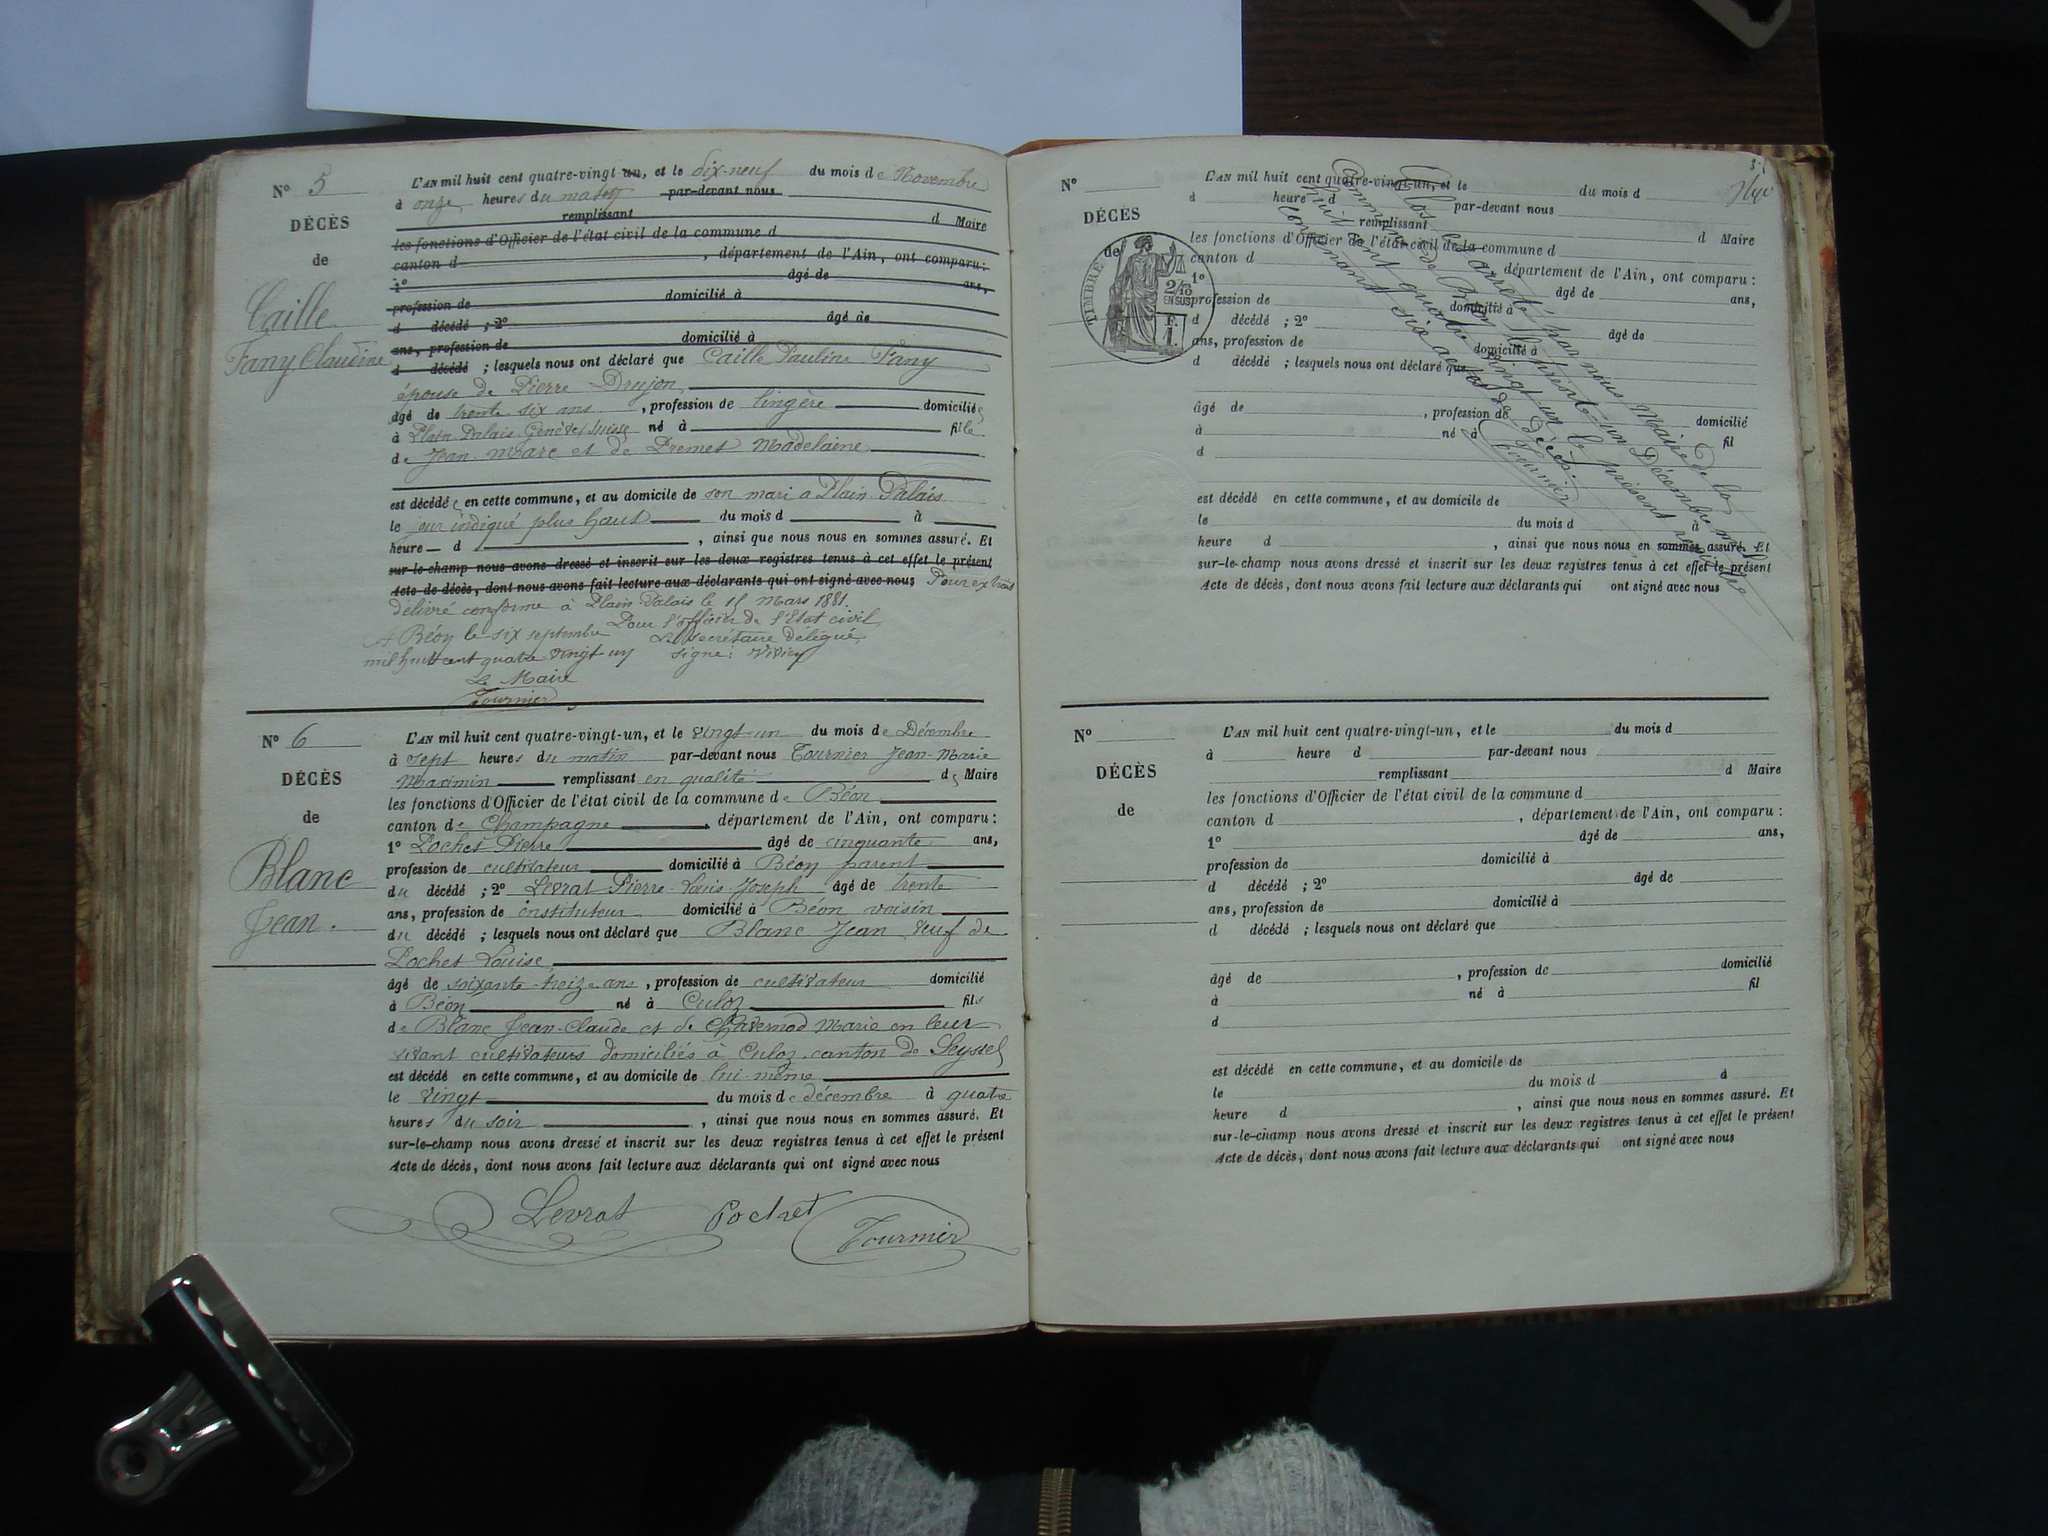 N° 5
DÉCÈS
de
Caille
Fany Claudine
L'AN mil huit cent quatre-vingt-un, et le dix-neuf du mois de Novembre
à onze heures du matin par-devant nous
remplissant d Maire
les fonctions d'Officier de l'état civil de la commune d
canton d , département de l'Ain, ont comparu:
1° âgé de ans,
profession de domicilié à
d décédé ; 2° âgé de
ans, profession de domicilié à
d décédé ; lesquels nous ont déclaré que Caille Pauline Fany
épouse de Pierre Drujon
âgé de trente six ans , profession de lingère domiciliée
à Plain Palais Genève Suisse né à fille
de Jean Marc et de Premet Madelaine
est décédée en cette commune, et au domicile de son mari a Plain Palais
le jour indiqué plus haut du mois d à
heure d , ainsi que nous nous en sommes assuré. Et
sur-le-champ nous avons dressé et inscrit sur les deux registres tenus à cet effet le présent
Acte de décès, dont nous avons fait lecture aux déclarants qui ont signé avec nous Pour extrait
delivré conforme à Plain Palais le 15 Mars 1881.
Pour l'officier de l'Etat civil
A Béon le six septembre Le secrétaire délégué
mil huit cent quatre vingt un signé:
Le Maire
Tournier
N° 6
DÉCÈS
de
Blanc
Jean.
L'AN mil huit cent quatre-vingt-un, et le vingt-un du mois de Décembre
à sept heures du matin par-devant nous Tournier Jean-Marie
Maximin remplissant en qualité de Maire
les fonctions d'Officier de l'état civil de la commune de Béon
canton de Champagne , département de l'Ain, ont comparu:
1° Pochet Pierre âgé de cinquante ans,
profession de cultivateur domicilié à Béon parent
du décédé ; 2° Levrat Pierre Louis Joseph âgé de trente
ans, profession de instituteur domicilié à Béon voisin
du décédé ; lesquels nous ont déclaré que Blanc Jean veuf de
Pochet Louise
âgé de soixante-treize ans, profession de cultivateur domicilié
à Béon né à Culoz fils
de Blanc Jean-Claude et de Chavernod Marie en leur
vivant cultivateurs domiciliés à Culoz canton de Seyssel
est décédé en cette commune, et au domicile de lui-même
le vingt du mois de décembre à quatre
heures du soir , ainsi que nous nous en sommes assuré. Et
sur-le-champ nous avons dressé et inscrit sur les deux registres tenus à cet effet le présent
Acte de décès, dont nous avons fait lecture aux déclarants qui ont signé avec nous
Levrat Pochet Tournier
N°
DÉCÈS
de
TIMBRE
2/10
EN SUS
L'AN mil huit cent quatre-vingt-un, et le du mois d
à heure d par-devant nous
remplissant d Maire
les fonctions d'Officier de l'état civil de la commune d
canton d département de l'Ain, ont comparu:
1° âgé de ans,
profession de domicilié à
d décédé ; 2° âgé de
ans, profession de domicilié à
d décédé ; lesquels nous ont déclaré que
âgé de , profession de domicilié
à né à fil
d
est décédé en cette commune, et au domicile de
le du mois d à
heure d , ainsi que nous nous en sommes assuré. Et
sur-le-champ nous avons dressé et inscrit sur les deux registres tenus à cet effet le présent
Acte de décès, dont nous avons fait lecture aux déclarants qui ont signé avec nous
Clos et arrêté par nous Maire de la
Commune de Béon le trente un Décembre mil
huit cent quatre vingt-un le présent registre
contenant six actes de décès.
Tournier
N°
DÉCÈS
de
L'AN mil huit cent quatre-vingt-un, et le du mois d
à heure d par-devant nous
remplissant d Maire
les fonctions d'Officier de l'état civil de la commune d
canton d , département de l'Ain, ont comparu:
1° âgé de ans,
profession de domicilié à
d décédé ; 2° âgé de
ans, profession de domicilié à
d décédé ; lesquels nous ont déclaré que
âgé de , profession de domicilié
à né à fil
d
est décédé en cette commune, et au domicile de
le du mois d à
heure d , ainsi que nous nous en sommes assuré. Et
sur-le-champ nous avons dressé et inscrit sur les deux registres tenus à cet effet le présent
Acte de décès, dont nous avons fait lecture aux déclarants qui ont signé avec nous